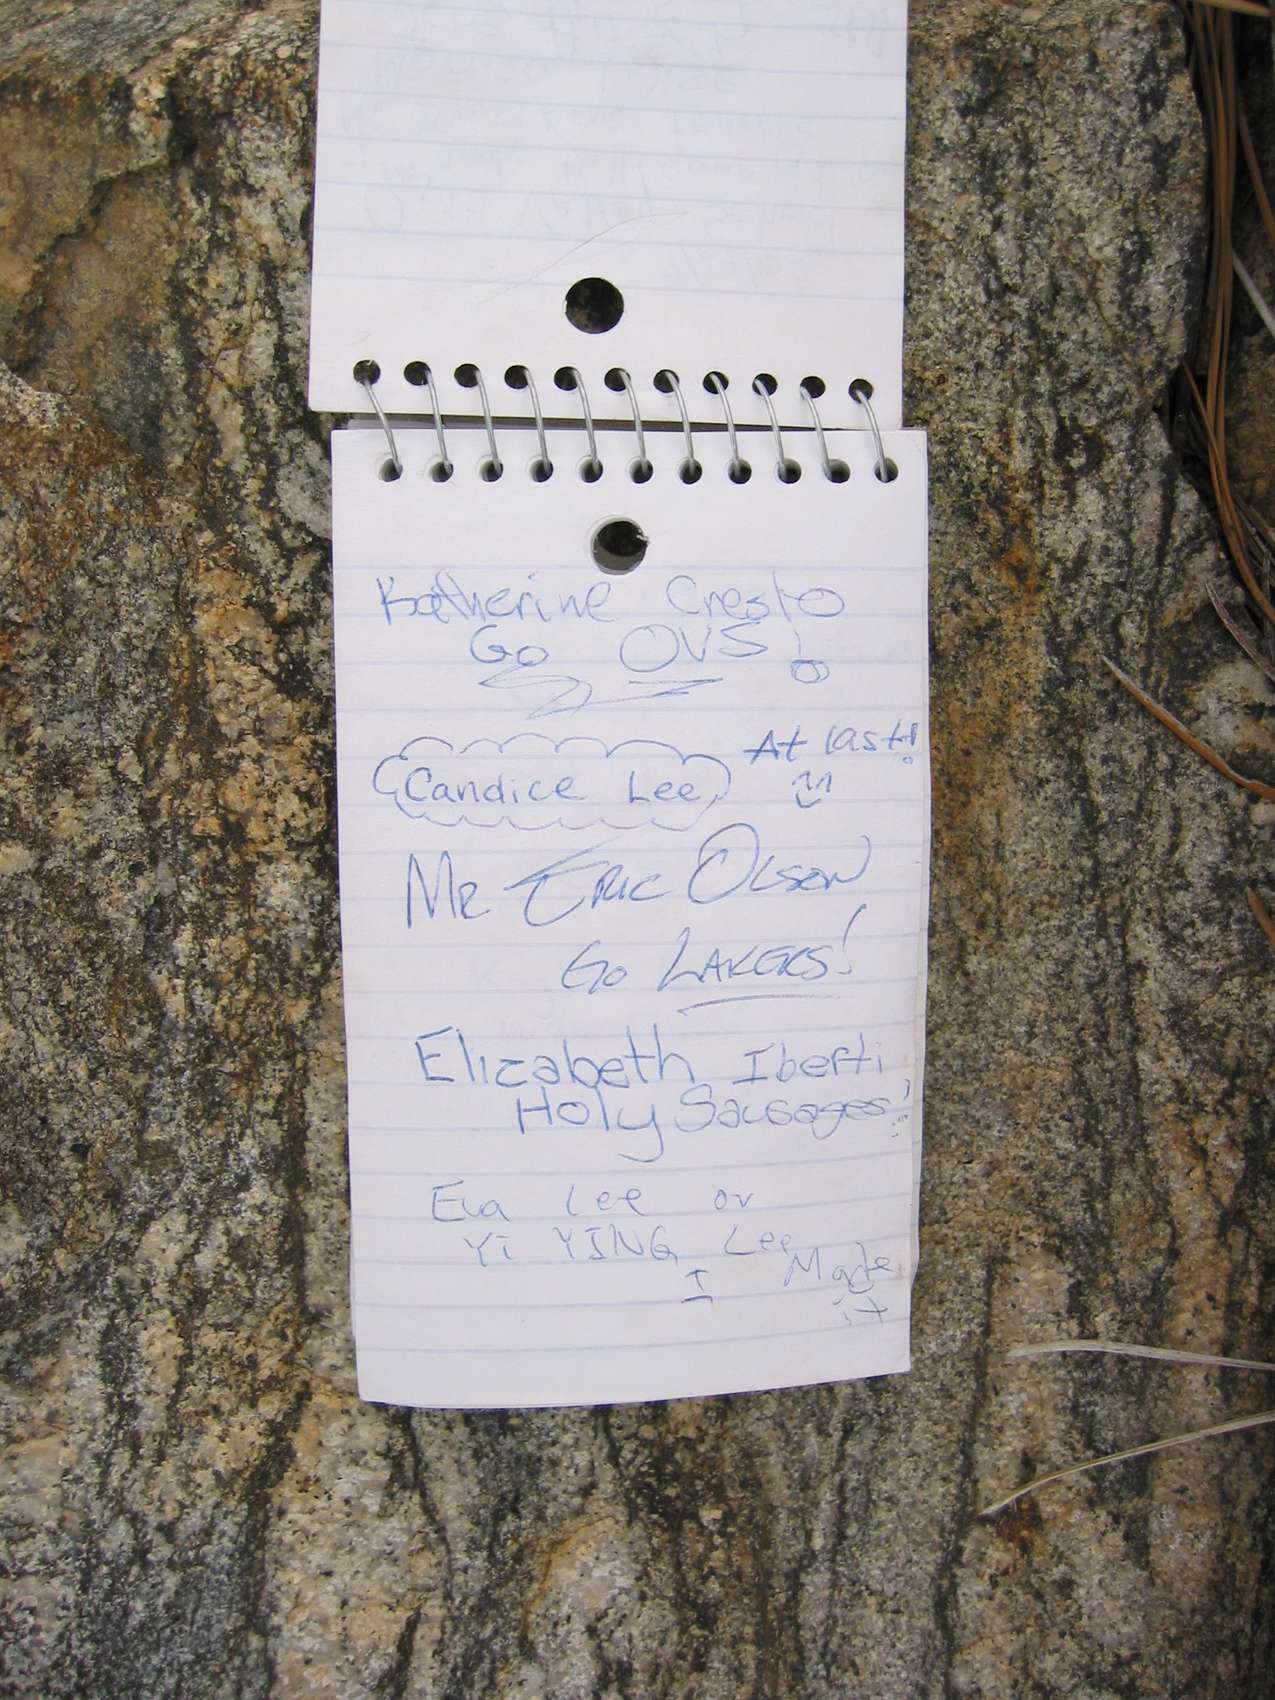 Katherine Cresto
Go OVS!
At last!
Candice Lee
Mr Eric Olson
Go Lakers!
Elizabeth Iberti
Holy Sausages!
Eva Lee or
Yi YING Lee
I Made
it